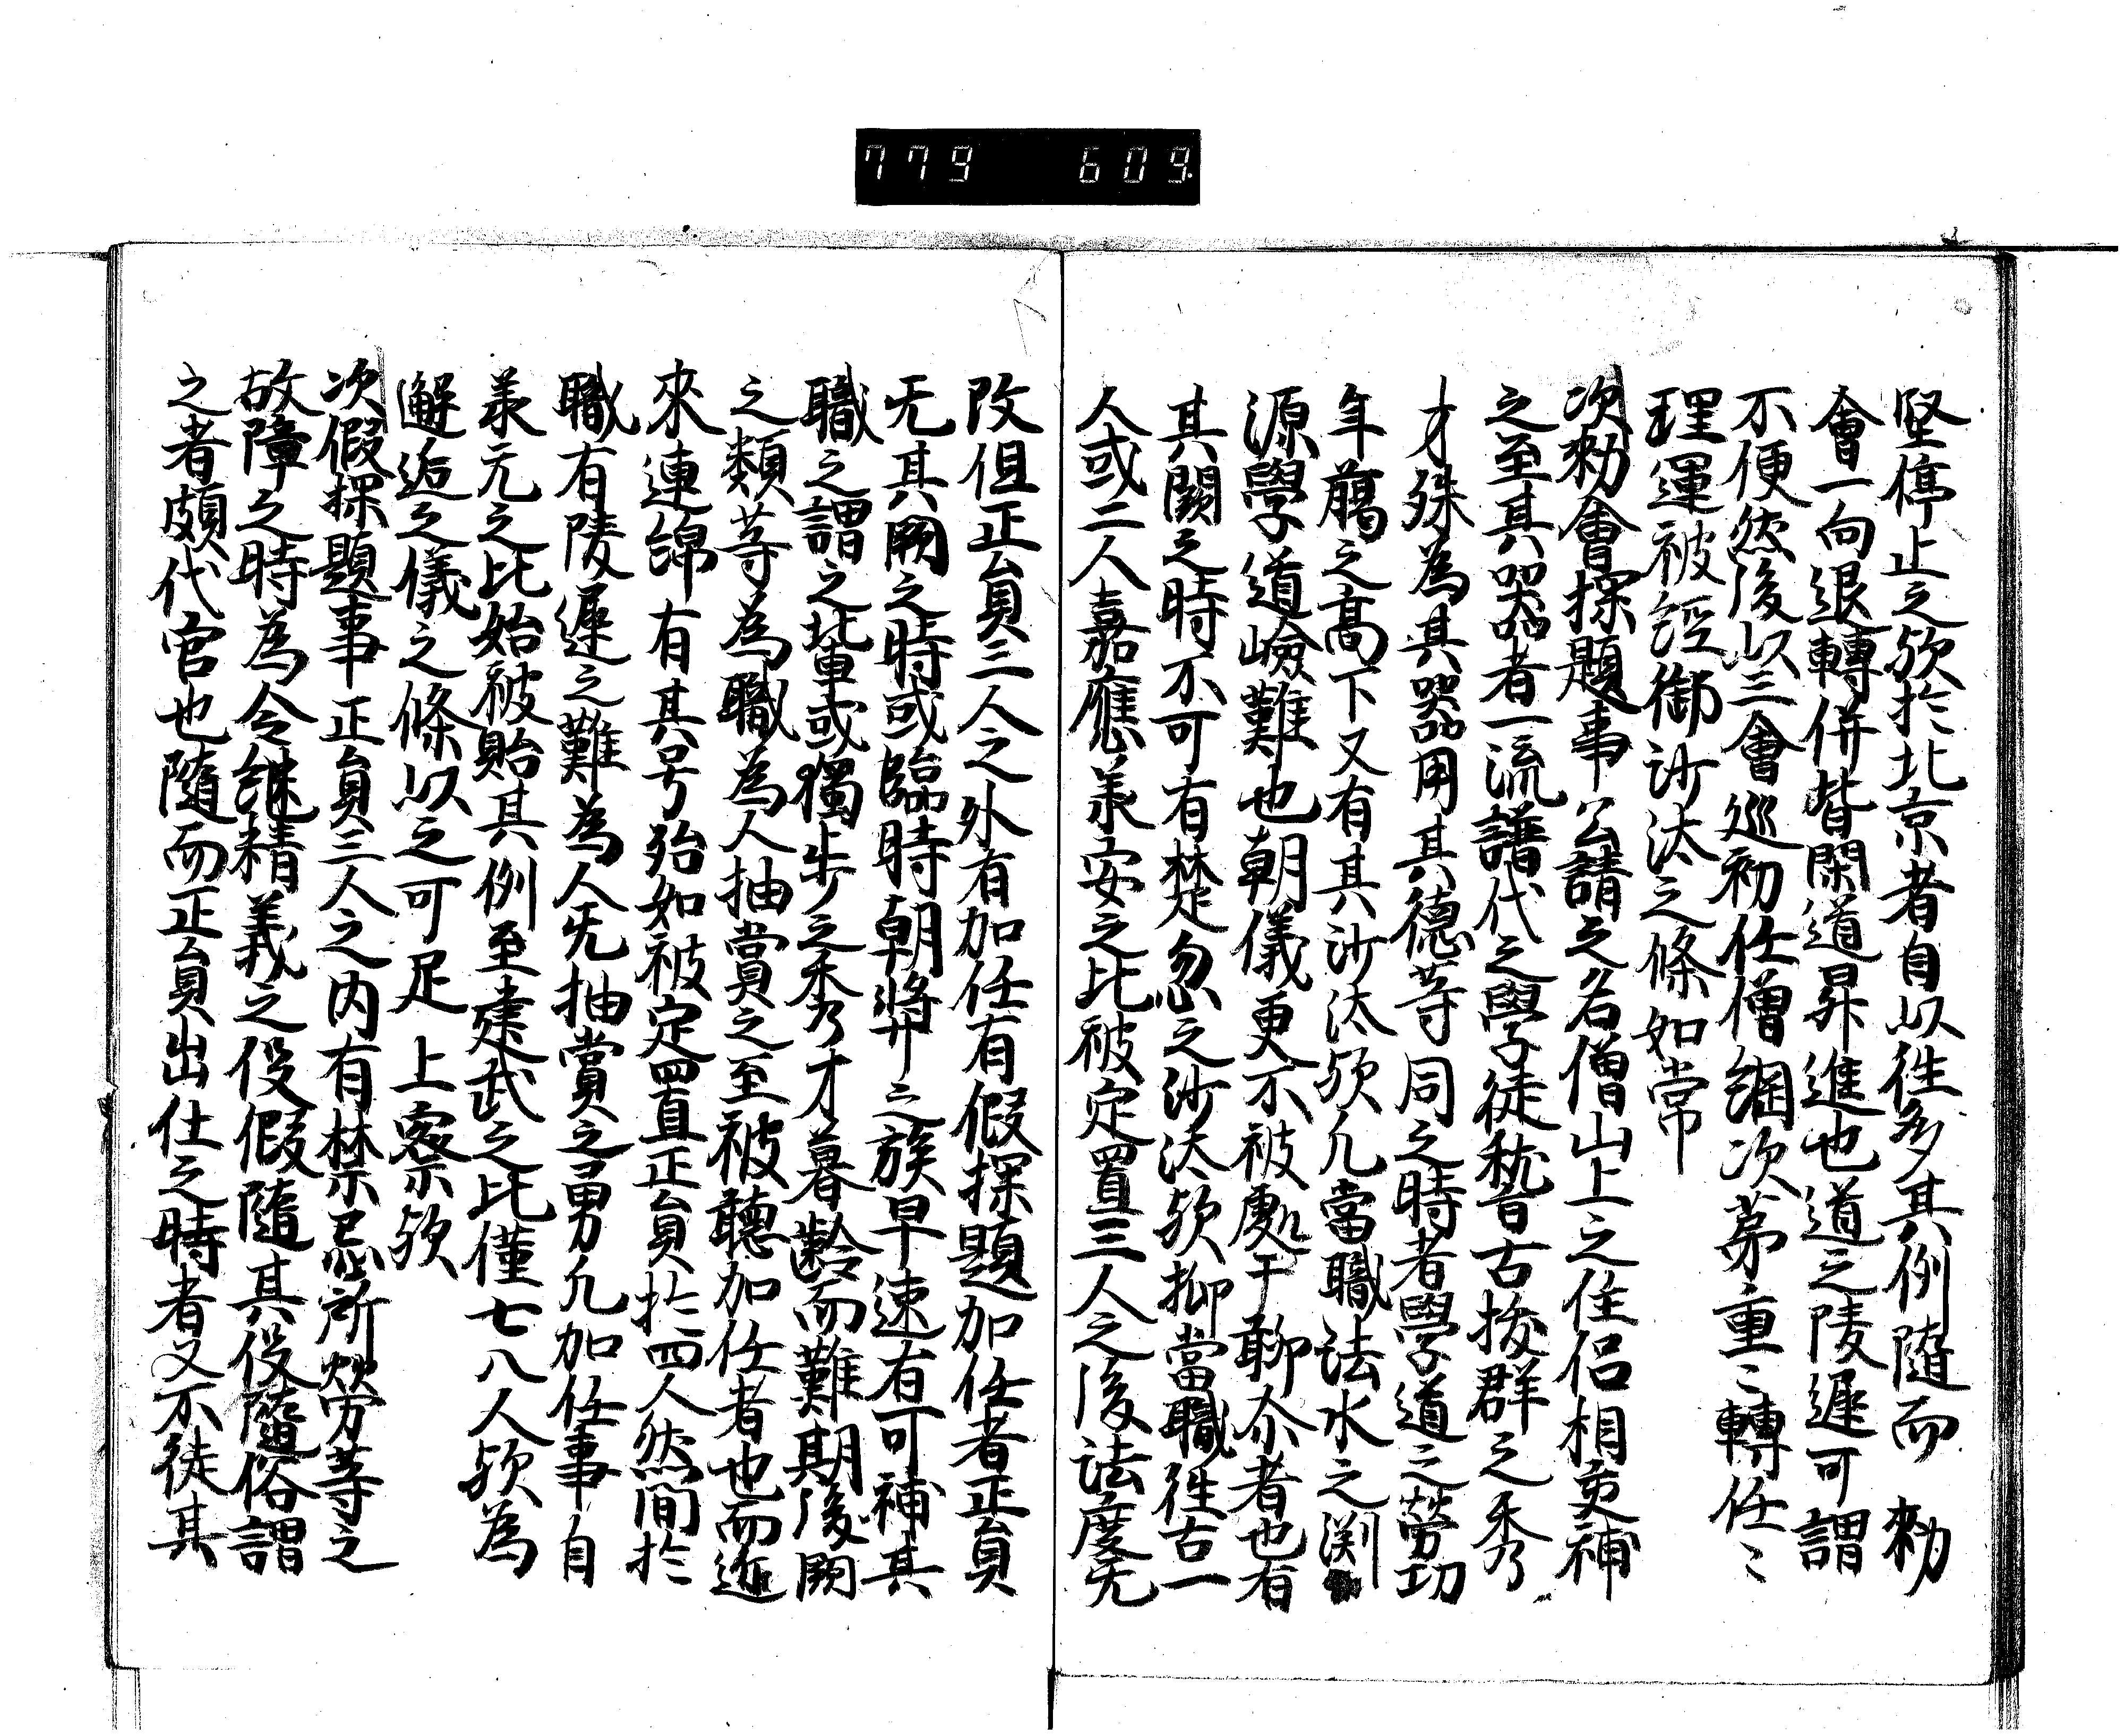 779 609.
堅停止之歟於北京者自以往多其例隨而 勅
會一向退轉併皆閑道昇進也道之陵遅可謂
不便然後以三會巡初任僧綱次第重〻轉任〻
理運被経御沙汰之條如常
次勅會探題事公請之名僧山上之住侶相交補
之至其器者一流譜代之學徒稽古抜群之秀
才殊為其器用其德等同之時者學道之勞功
年﨟之高下又有其沙汰歟凡當職法水之渕
源學道嶮難也朝儀更不被處于聊尒者也有
其闕之時不可有楚忽之沙汰歟抑當職往古一
人或二人嘉應承安之比被定置三人之後法度无
改但正員三人之外有加任有假探題加任者正員
无其闕之時或臨時朝弊之族早速有可補其
職之謂之輩或獨歩之秀才暮齢而難期後闕
之類等為職為人抽賞之至被聽加任者也而近
來連綿有其号殆如被定置正員於四人然間於
職有陵遅之難為人无抽賞之勇凡加任事自
承元之比始被貽其例至建武之比僅七八人歟為
邂逅之儀之條以之可足 上察歟
次假探題事正員三人之内有禁忌所勞等之
故障之時為令継精義之役假隨其役隨俗謂
之者頗代官也隨而正員出仕之時者又不徒其